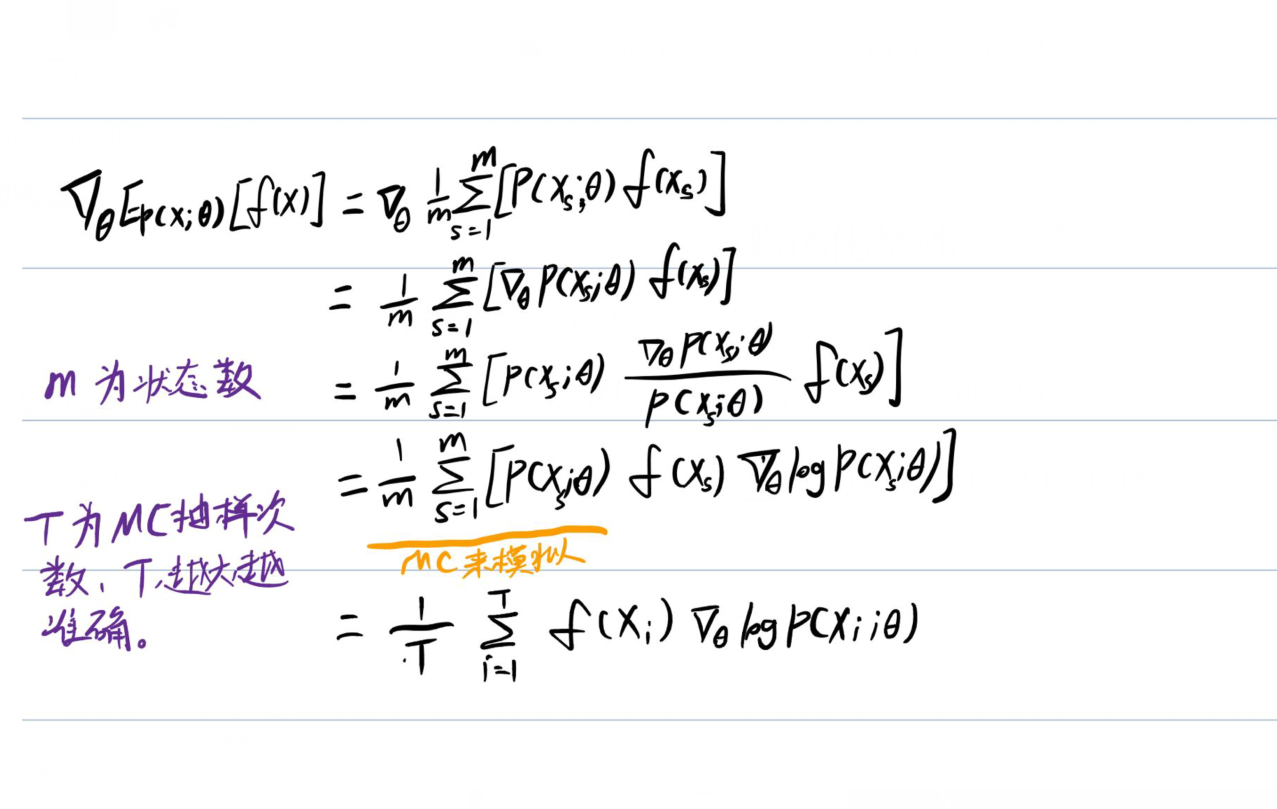 ∇_θ E_{p(x;θ)}[f(x)] = ∇_θ \frac{1}{m} \sum_{s=1}^{m} [P(x_s;θ) f(x_s)]
= \frac{1}{m} \sum_{s=1}^{m} [∇_θ P(x_s;θ) f(x_s)]
m 为状态数
= \frac{1}{m} \sum_{s=1}^{m} [P(x_s;θ) \frac{∇_θ P(x_s;θ)}{P(x_s;θ)} f(x_s)]
= \frac{1}{m} \sum_{s=1}^{m} [P(x_s;θ) f(x_s) ∇_θ log P(x_s;θ)]
T 为 MC 抽样次
数、T 越大越
准确。
MC 来模拟
= \frac{1}{T} \sum_{i=1}^{T} f(x_i) ∇_θ log P(x_i;θ)